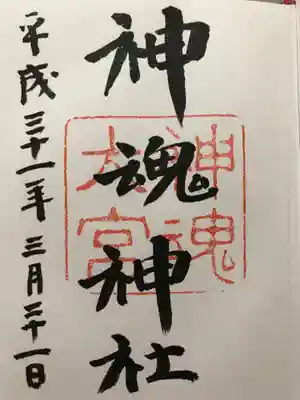 神魂神社
神魂
大宮
平成三十一年三月三十一日